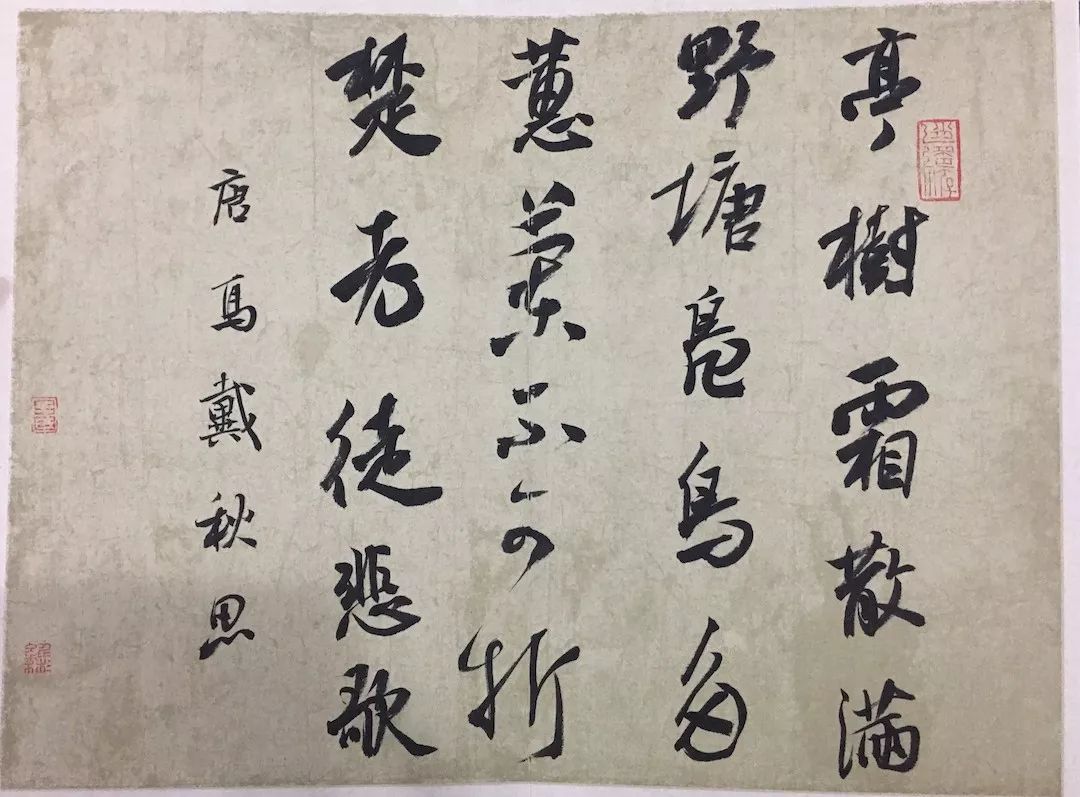 亭樹霜散滿
野塘鳧鳥多
蕙蘭不可折
楚老徒悲歌
唐馬戴秋思